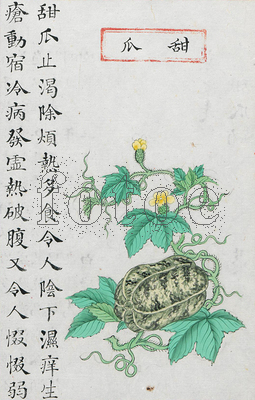 甜瓜
甜瓜止渴除煩熱多食令人陰下濕痒生
瘡動宿冷病發虛熱破腹又令人惙惙弱